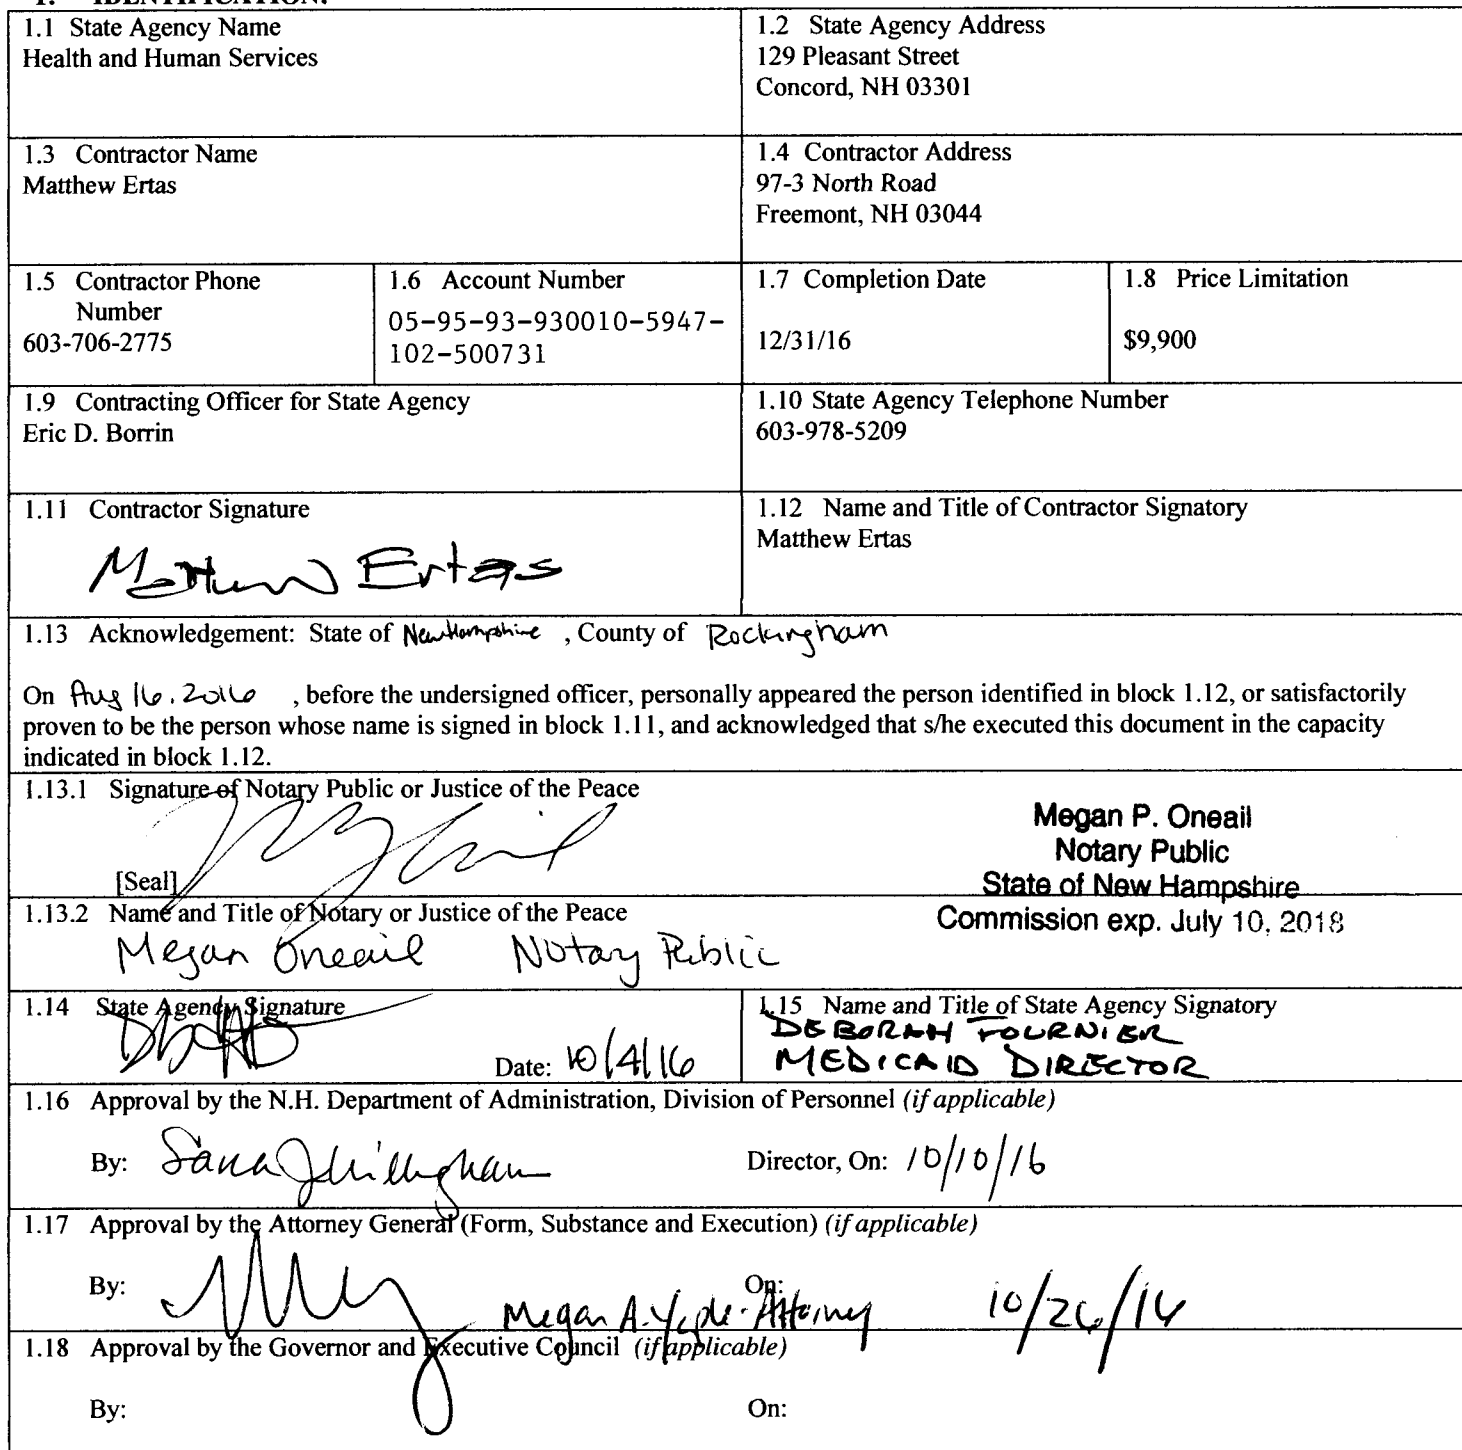 1. IDENTIFICATION.
1.1 State Agency Name
Health and Human Services
1.2 State Agency Address
129 Pleasant Street
Concord, NH 03301
1.3 Contractor Name
Matthew Ertas
1.4 Contractor Address
97-3 North Road
Freemont, NH 03044
1.5 Contractor Phone
Number
603-706-2775
1.6 Account Number
05-95-93-930010-5947-
102-500731
1.7 Completion Date
12/31/16
1.8 Price Limitation
$9,900
1.9 Contracting Officer for State Agency
Eric D. Borrin
1.10 State Agency Telephone Number
603-978-5209
1.11 Contractor Signature
Matthew Ertas
1.12 Name and Title of Contractor Signatory
Matthew Ertas
1.13 Acknowledgement: State of New Hampshire , County of Rockingham
On Aug 16, 2016 , before the undersigned officer, personally appeared the person identified in block 1.12, or satisfactorily
proven to be the person whose name is signed in block 1.11, and acknowledged that s/he executed this document in the capacity
indicated in block 1.12.
1.13.1 Signature of Notary Public or Justice of the Peace
[Seal]
Megan P. Oneail
Notary Public
State of New Hampshire
Commission exp. July 10, 2018
1.13.2 Name and Title of Notary or Justice of the Peace
Megan Oneail Notary Public
1.14 State Agency Signature
Date: 10/4/16
1.15 Name and Title of State Agency Signatory
DEBORAH FOURNIER
MEDICAID DIRECTOR
1.16 Approval by the N.H. Department of Administration, Division of Personnel (if applicable)
By: Sara J Willingham Director, On: 10/10/16
1.17 Approval by the Attorney General (Form, Substance and Execution) (if applicable)
By: Megan A. Yaple - Attorney On: 10/26/16
1.18 Approval by the Governor and Executive Council (if applicable)
By: On: